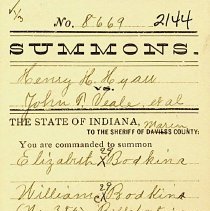 No. 8669 2144
SUMMONS.
Henry H. Hyatt
vs.
John R Seale, et al
THE STATE OF INDIANA,
Marion
TO THE SHERIFF OF DAVIESS COUNTY:
You are commanded to summon
29
Elizabeth Bodkins
29
William Bodkins